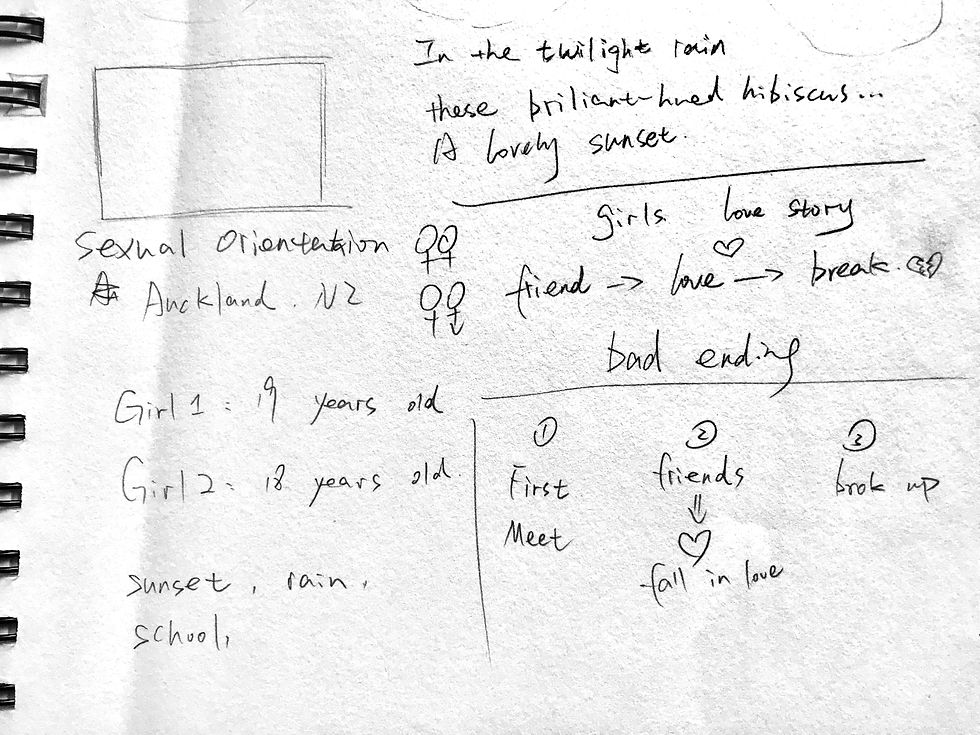 In the twilight rain
these briliant-hued hibiscus...
A lovely sunset.
Sexual Orientation
Auckland. NZ
girls love story
friend → love → break.
bad ending
Girl 1: 19 years old
Girl 2: 18 years old.
sunset, rain,
school,
①
First
Meet
②
friends
⇓
♡
fall in love
③
brok up